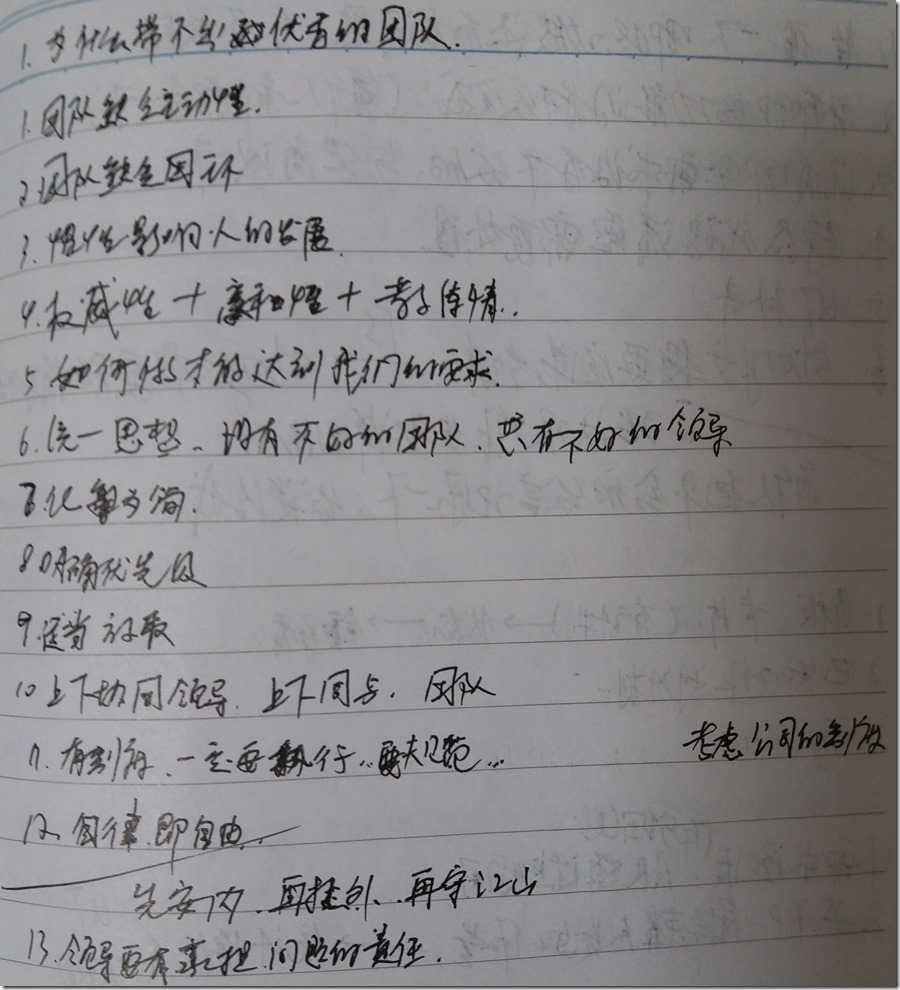 1. 为什么带不出优秀的团队.
1. 团队缺乏主动性.
2. 团队缺乏因环
3. 惰性影响人的发展.
4. 权威性 + 亲和性 + 共情..
5 如何做才能达到我们的要求.
6. 统一思想、没有不好的团队、只有不好的领导
7. 化繁为简.
8 明确优先级
9. 适当 放
10 上下协同领导. 上下同步. 团队
11. 有制度、一定要执行..要规范... 考虑公司的制度
12. 自律.即自由..
先安内、再扰外、再守江山
13. 领导要有承担 问题的责任.